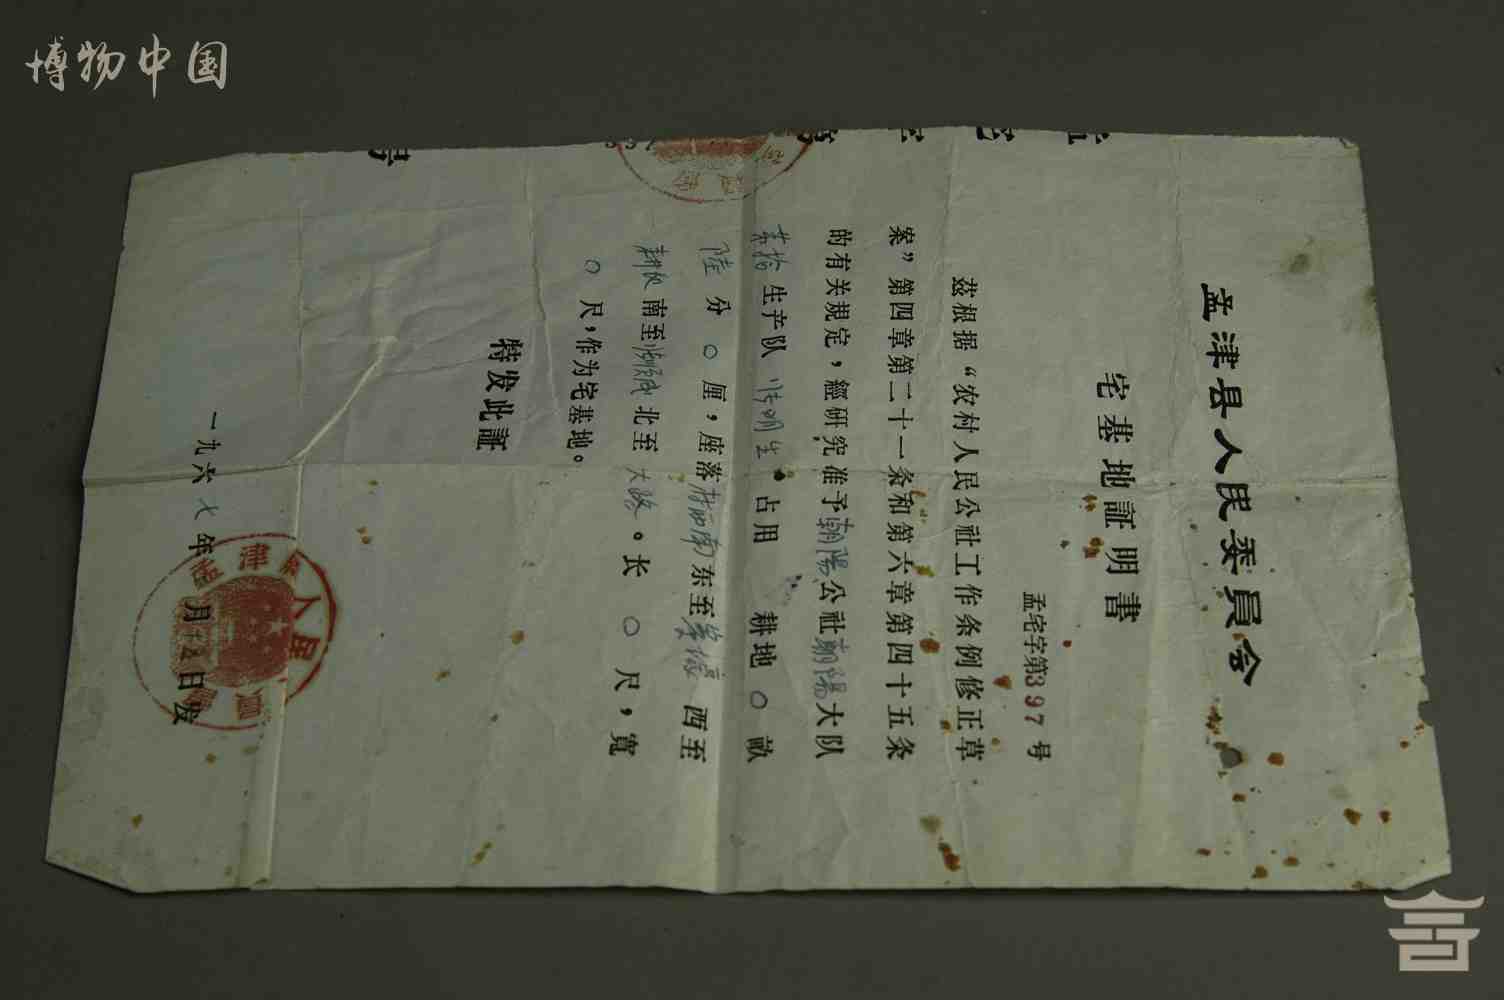 博物中国
孟津县人民委員会
宅基地証明書
孟宅字第397号
茲根据“农村人民公社工作条例修正草
案”第四章第二十一条和第六章第四十五条
的有关規定，經研究准予朝陽公社朝陽大队
拾生产队 明生 占用 耕地〇畝
陆分〇厘，座落村西南东至 西至
耕地南至 北至大路。长〇尺，寬
〇尺，作为宅基地。
特发此証
一九六七年 月 日发
孟津县人民
号